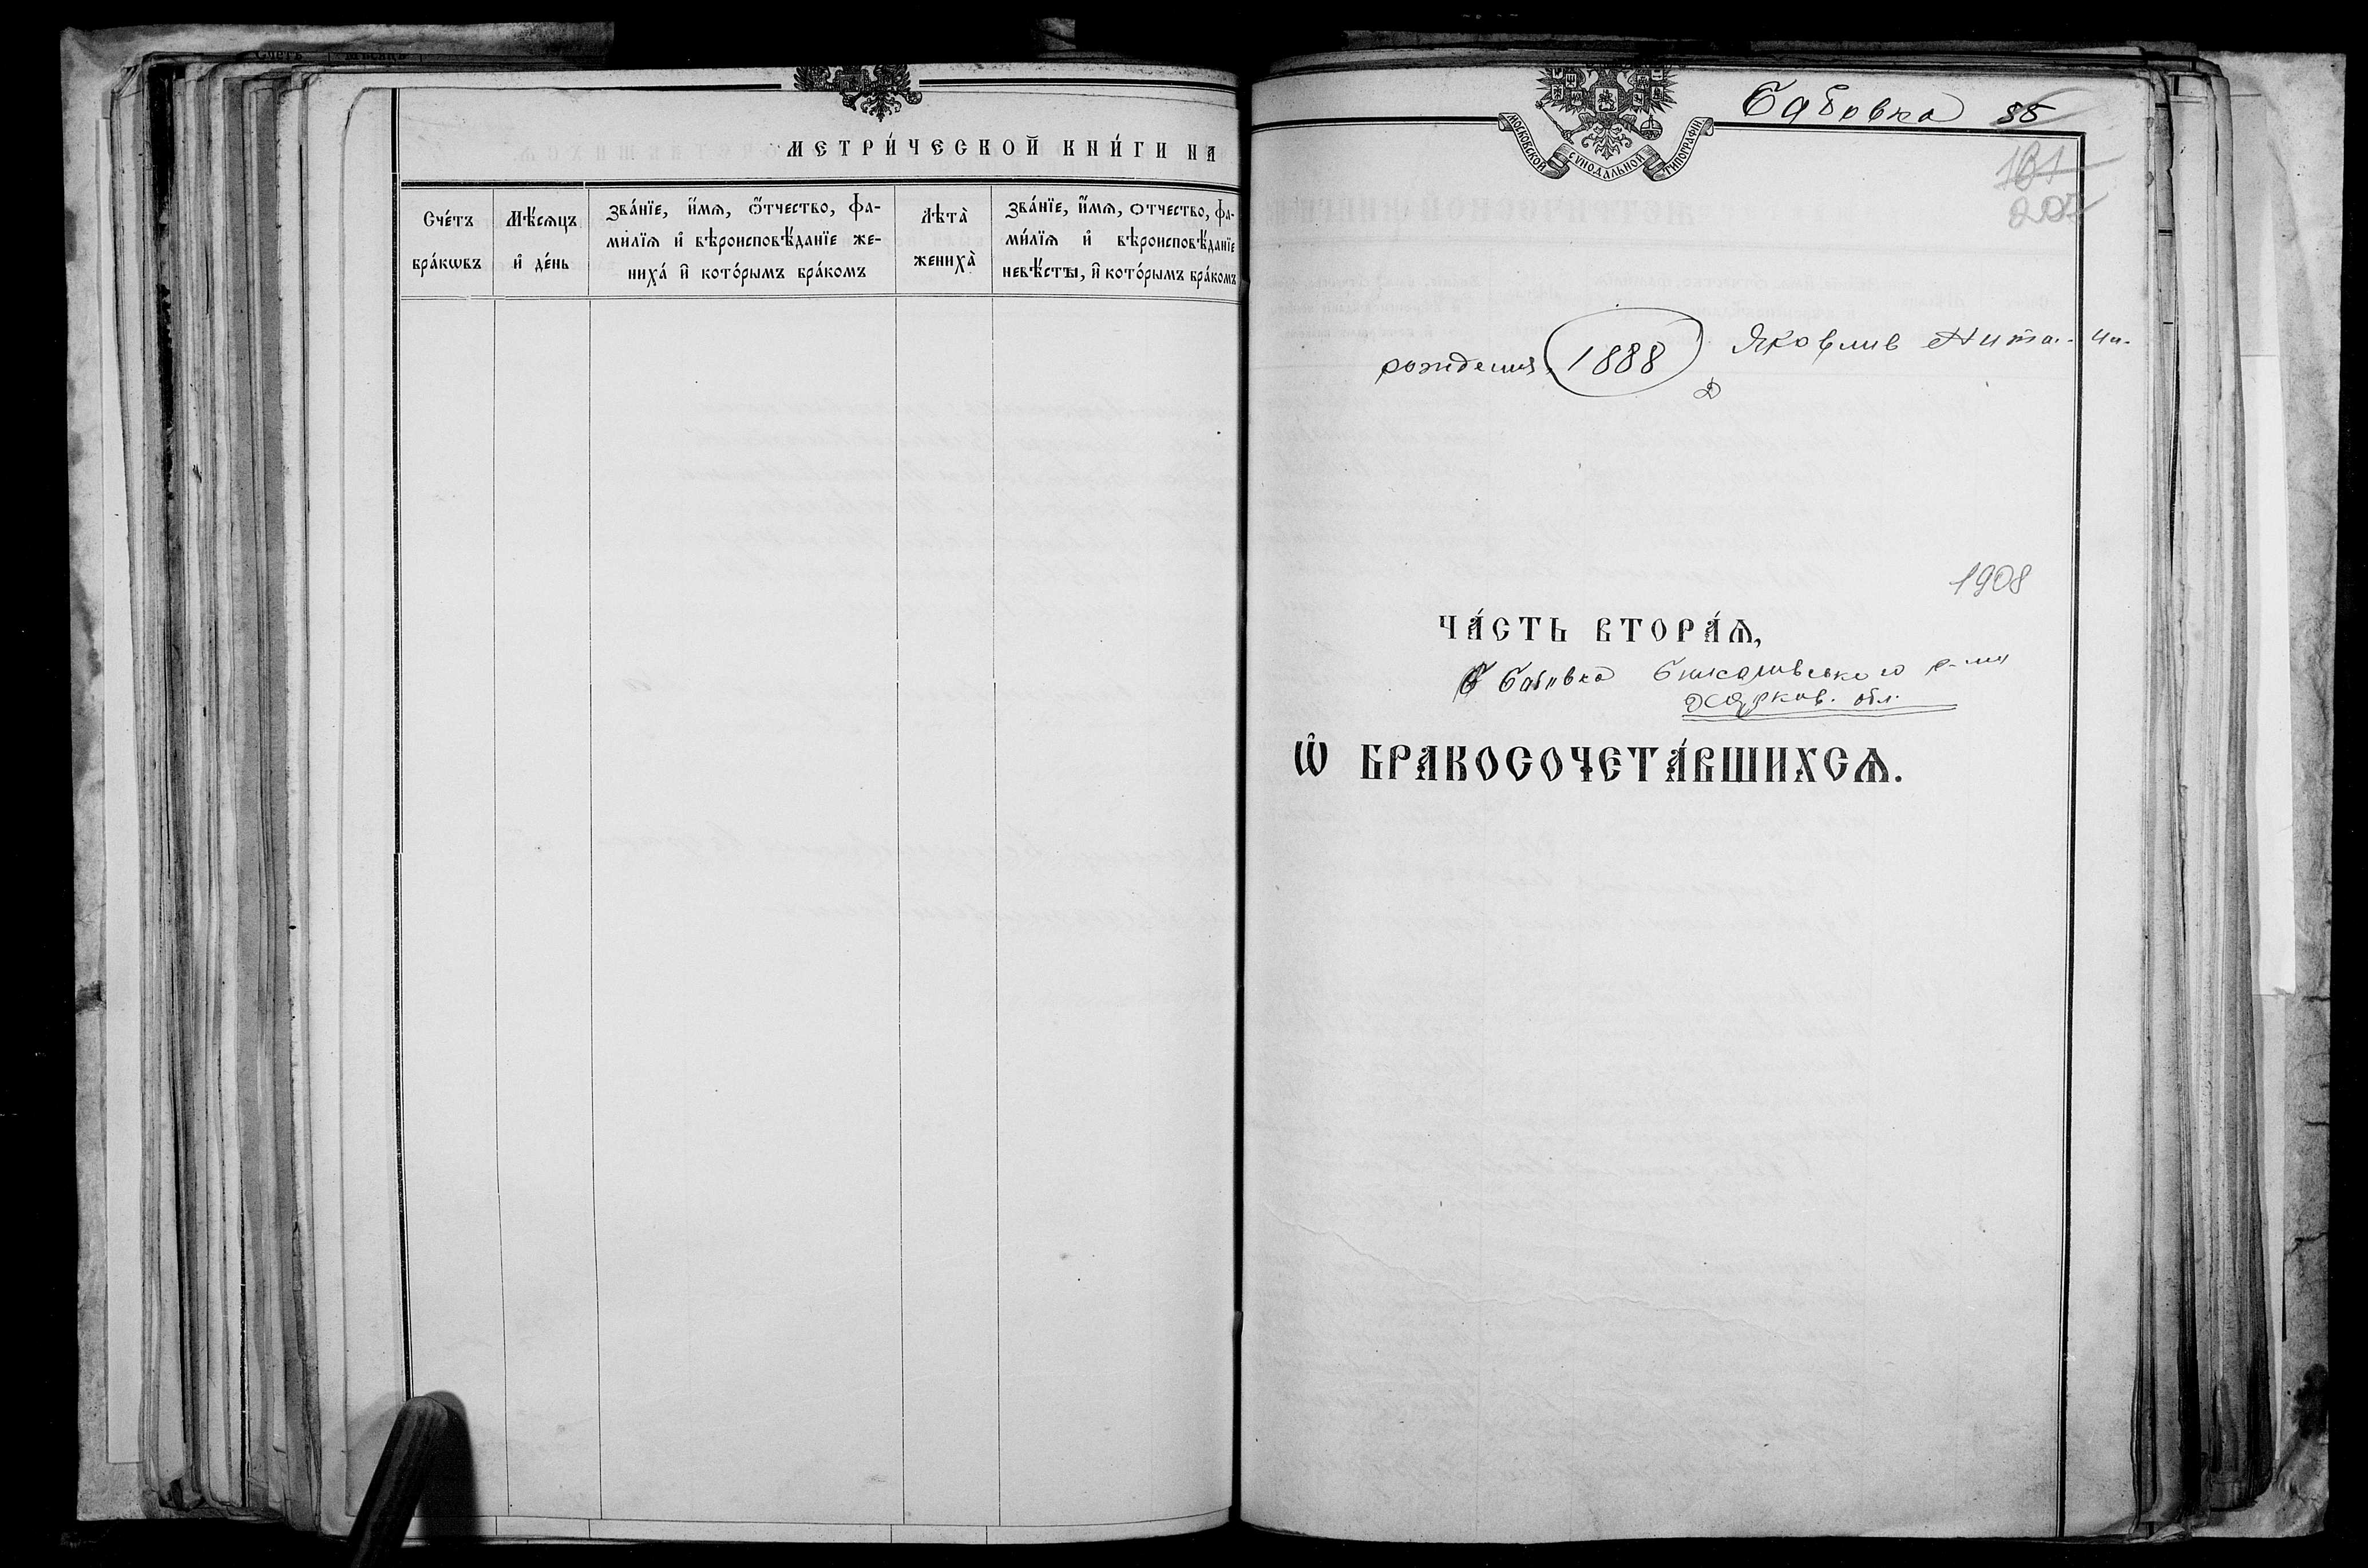 Счетъ Мѣсяцъ
МЕТРИ́ЧЕСКОЙ КНИ́ГИ НА
Сче́тъ
бра́кѡвъ
Мѣ́сяцъ
и҆ де́нь
Зва́нїе, и҆́мѧ, ѻ҆́тчество, фа-
ми́лїѧ и҆ вѣроисповѣ́данїе же-
ниха́ и҆ кото́рымъ бра́комъ
Лѣта̀
жениха̀
Зва́нїе, и҆́мѧ, отчество, фа-
ми́лїѧ и҆ вѣроисповѣ́данїе
невѣ́сты, и҆ кото́рымъ бра́комъ
МОСКОВСКОЙ СѴНОДАЛЬНОЙ ТИПОГРАФІИ.
Бабовка 88
181
207
рождения 1888 Яковлив
1908
ЧА́СТЬ ВТОРА́Ѧ,
Бабовка р-ну
Харков. обл.
Ѽ БРАКОСОЧЕТА́ВШИХСѦ.